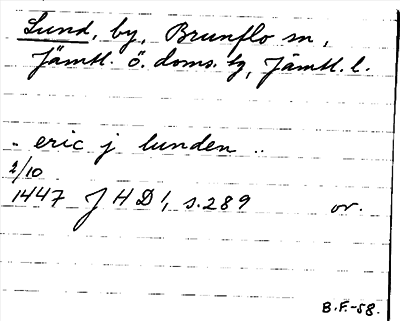 Lund, by, Brunflo sn,
Jämtl. ö. doms. tg, Jämtl. l.
.. eric j lunden ..
2/10
1447 JHD 1, s. 289 or.
B.F.-58.